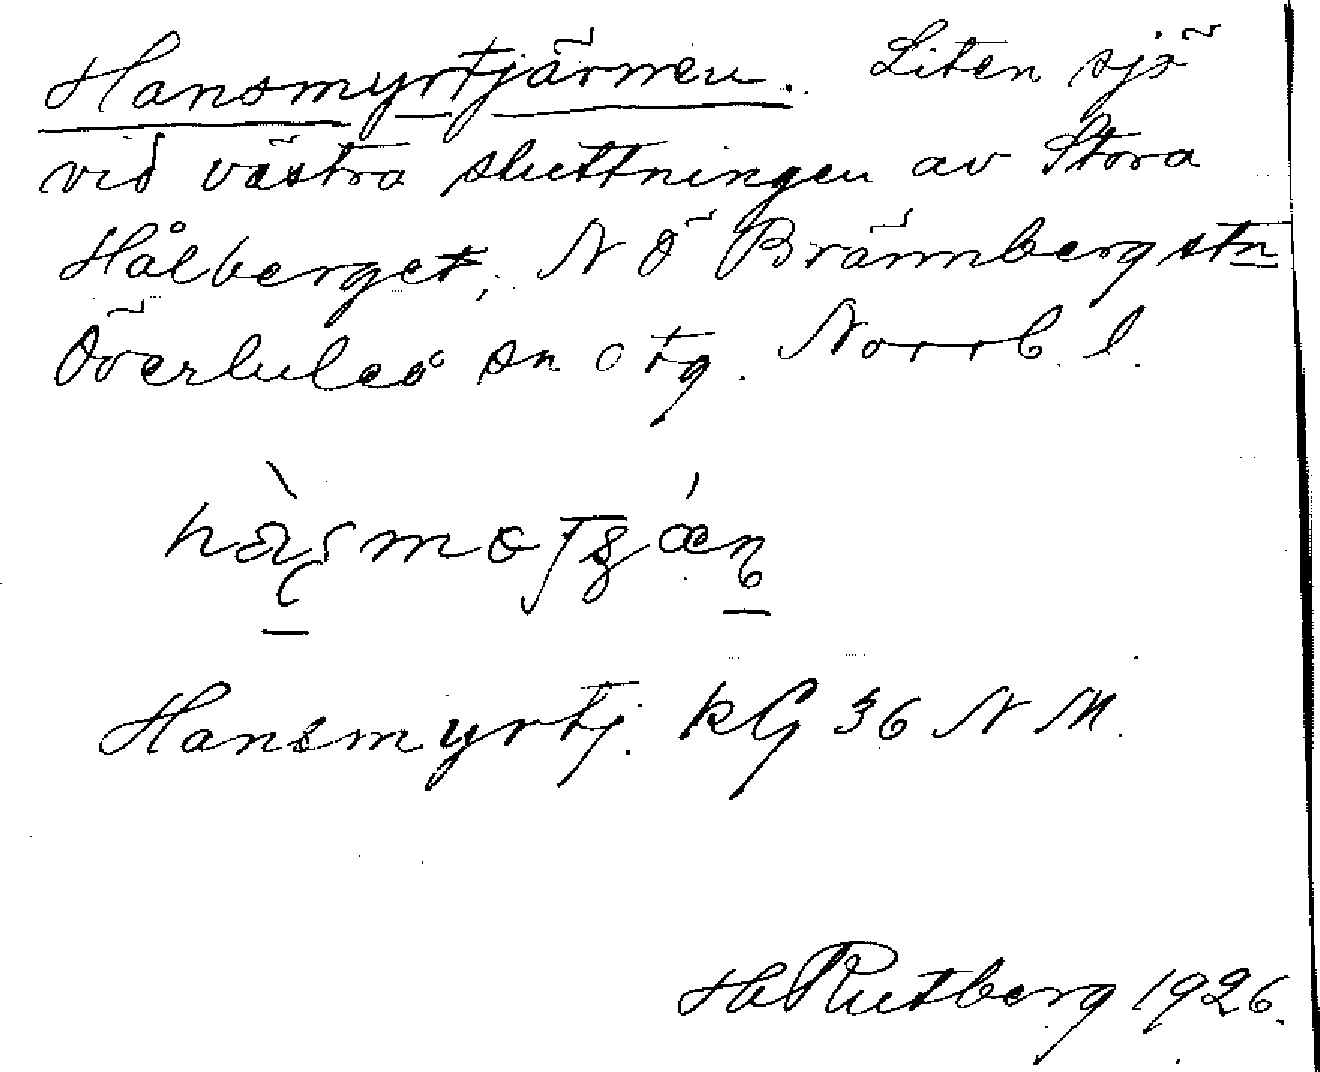 Hansmyrtjärnen. Liten sjö
vid västra sluttningen av Stora
Hålberget, N Ö Brännbergstn
Överluleå sn o tg. Norrb l.
Hansmyrtj. kG 36 N M.
H Rutberg 1926.